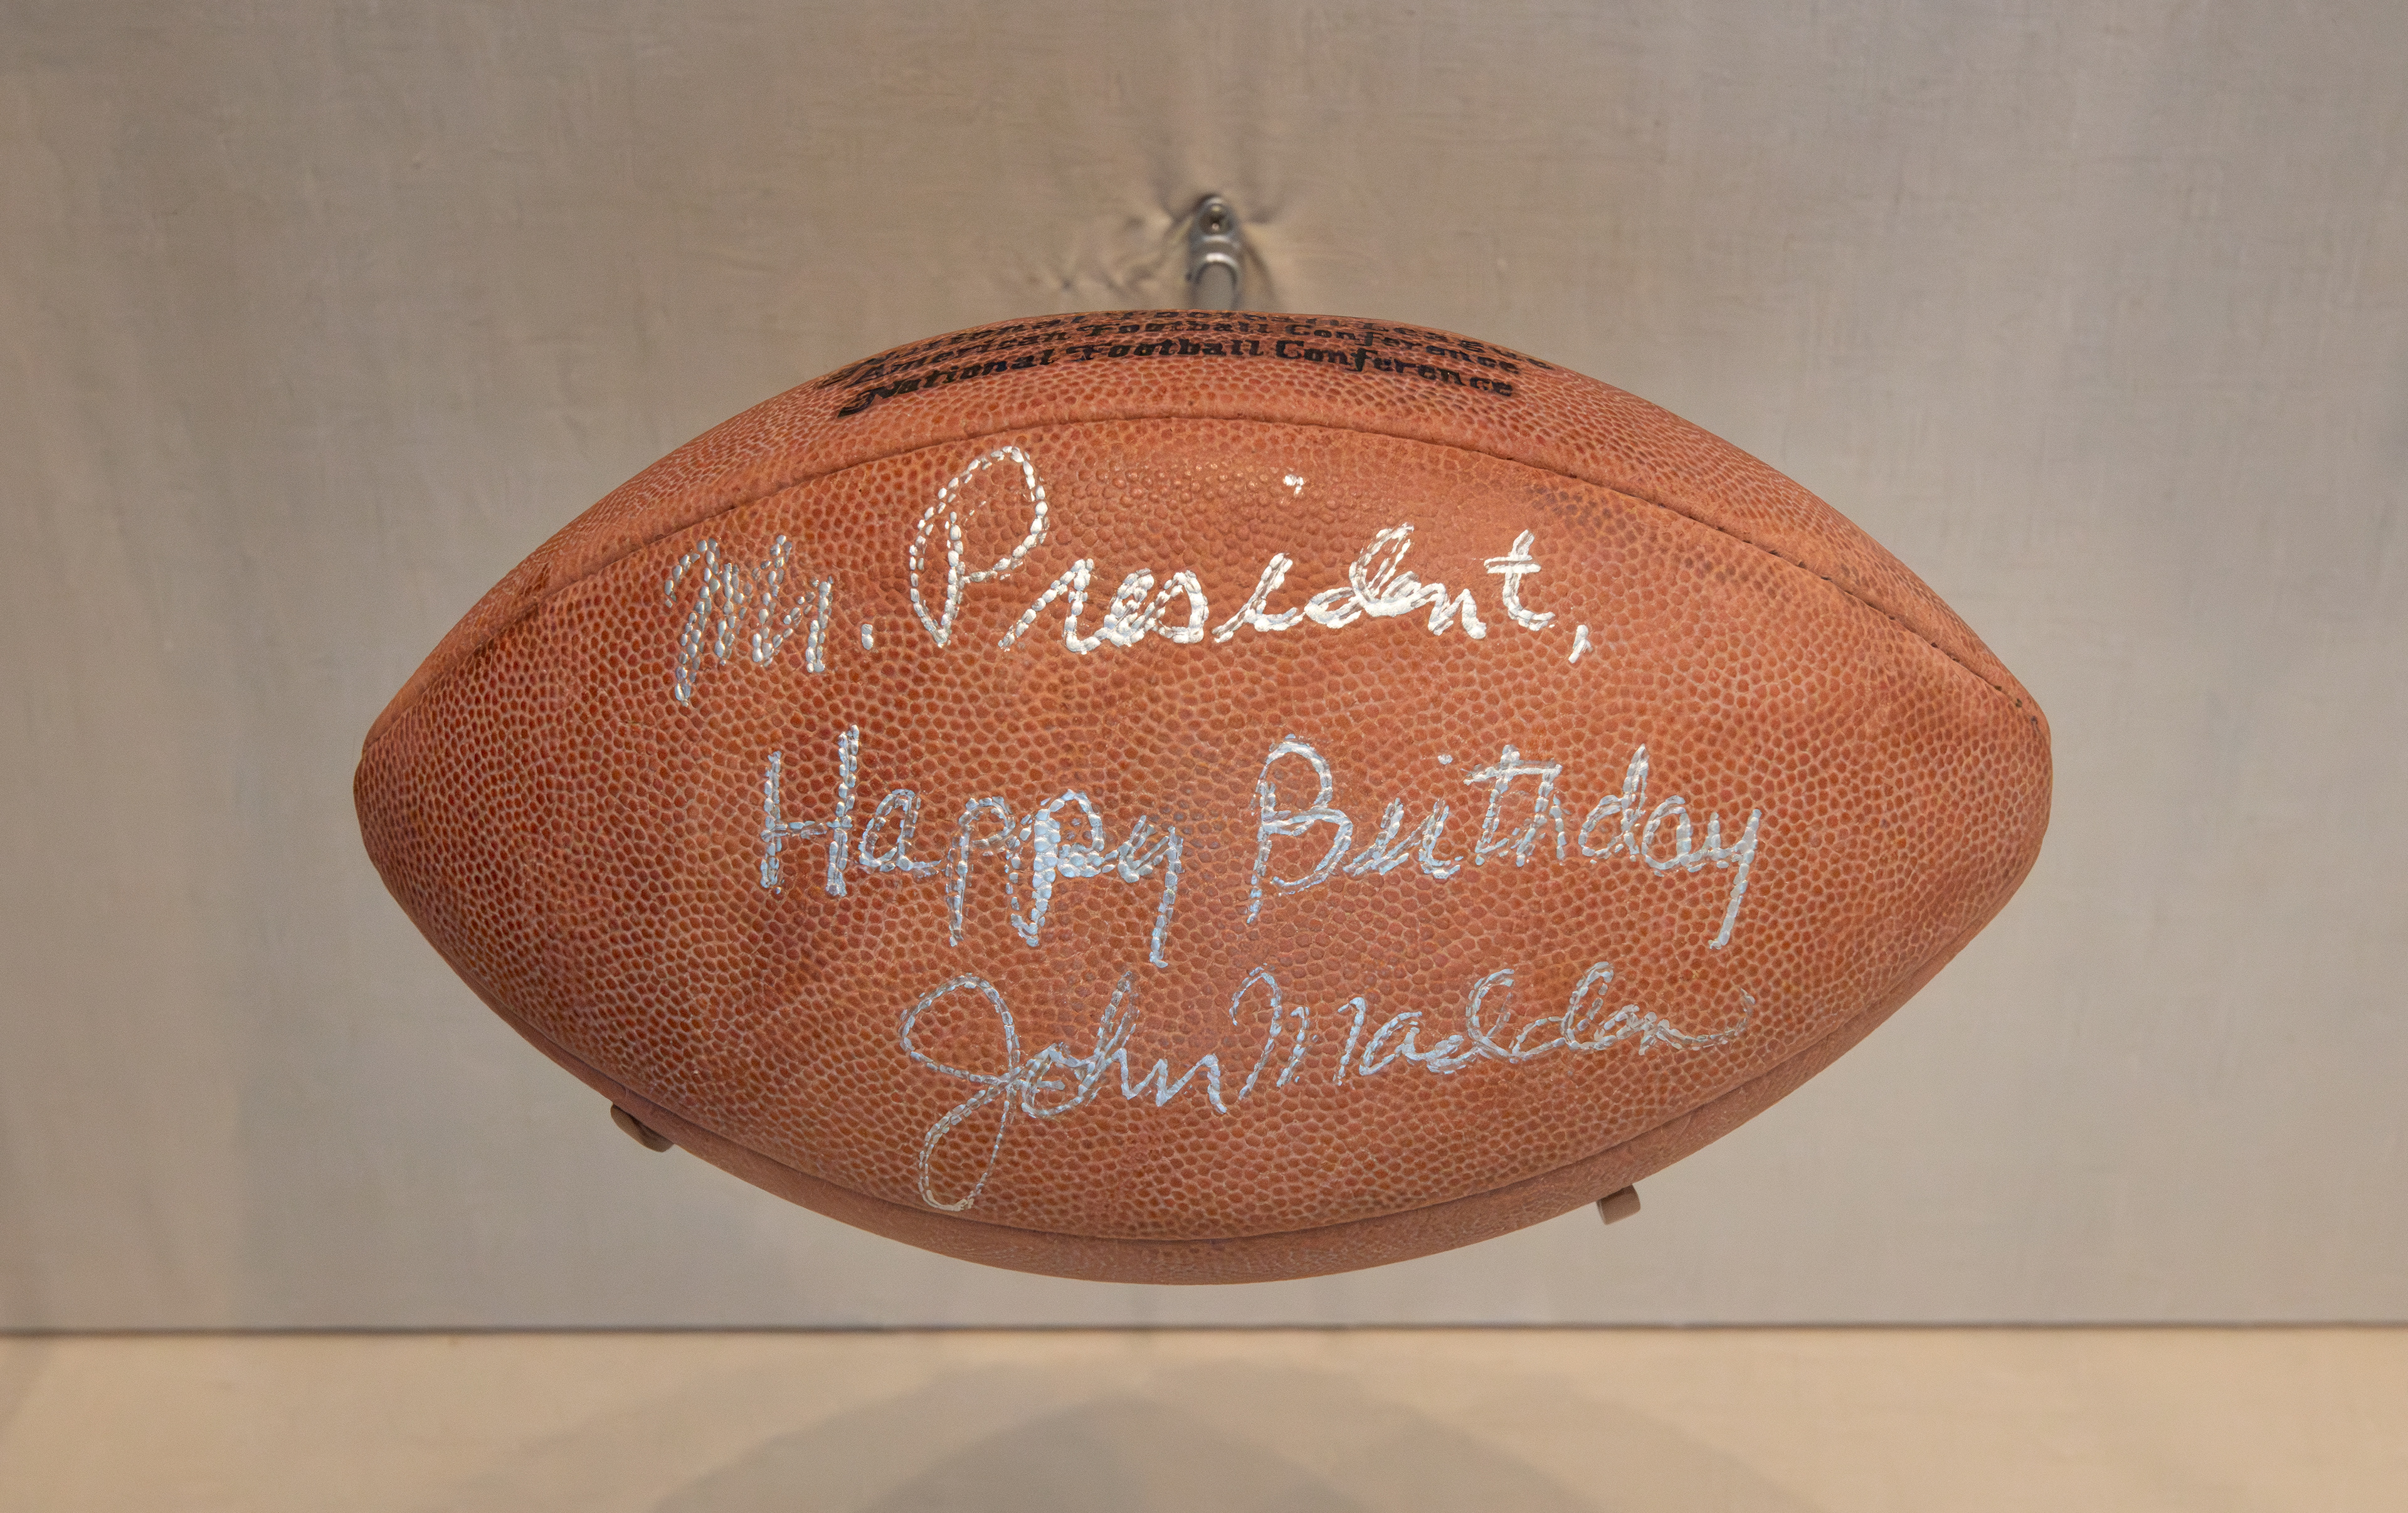 National Football League
American Football Conference
National Football Conference
Mr. President,
Happy Birthday
John Madden